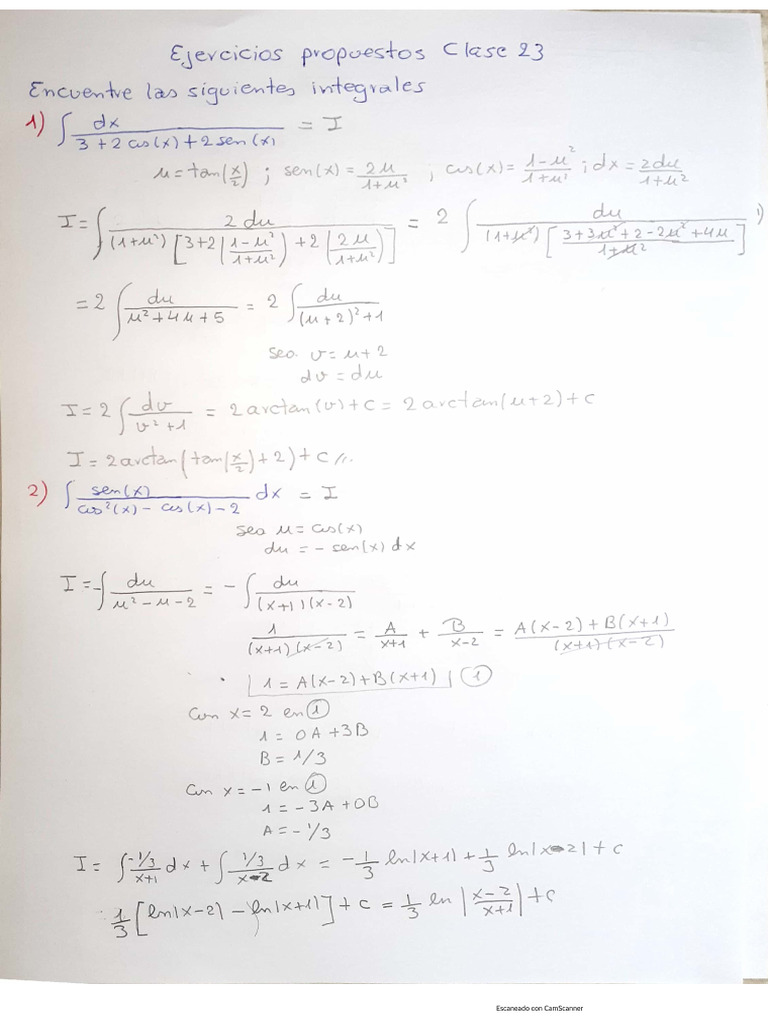 Ejercicios propuestos Clase 23
Encuentre las siguientes integrales
1) ∫ dx / (3 + 2 cos(x) + 2 sen(x)) = I
u = tan(x/2) ; sen(x) = 2u/(1+u²) ; cos(x) = (1-u²)/(1+u²) ; dx = 2du/(1+u²)
I = ∫ 2 du / ((1+u²)[3+2((1-u²)/(1+u²)) + 2(2u/(1+u²))]) = 2 ∫ du / ((1+u²)[(3+3u²+2-2u²+4u)/(1+u²)])
= 2 ∫ du / (u²+4u+5) = 2 ∫ du / ((u+2)²+1)
sea v = u+2
dv = du
I = 2 ∫ dv / (v²+1) = 2 arctan(v) + c = 2 arctan(u+2) + c
I = 2 arctan(tan(x/2) + 2) + c //.
2) ∫ sen(x) / (cos²(x) - cos(x) - 2) dx = I
sea u = cos(x)
du = - sen(x) dx
I = -∫ du / (u²-u-2) = - ∫ du / ((x+1)(x-2))
1 / ((x+1)(x-2)) = A/(x+1) + B/(x-2) = (A(x-2) + B(x+1)) / ((x+1)(x-2))
1 = A(x-2) + B(x+1) ①
Con x = 2 en ①
1 = 0A + 3B
B = 1/3
Con x = -1 en ①
1 = -3A + 0B
A = -1/3
I = ∫ (-1/3)/(x+1) dx + ∫ (1/3)/(x-2) dx = -1/3 ln|x+1| + 1/3 ln|x-2| + c
1/3 [ln|x-2| - ln|x+1|] + c = 1/3 ln |(x-2)/(x+1)| + c
Escaneado con CamScanner